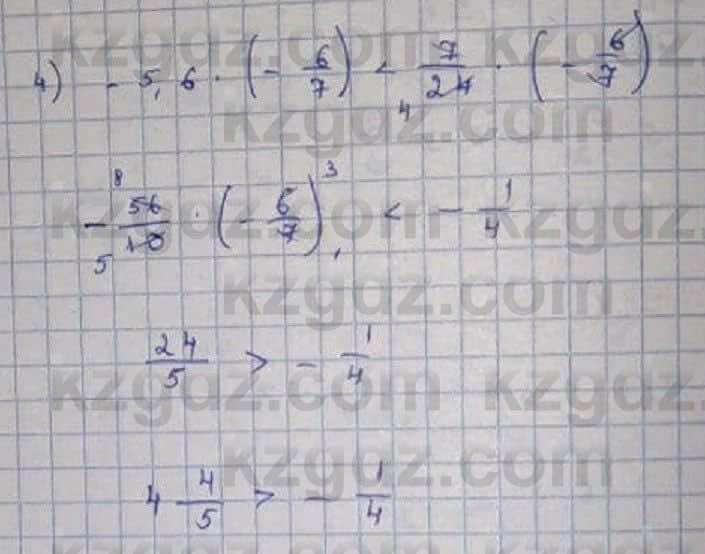 4) - 5,6 · (- 6/7) < 7/24 · (- 6/7)
4 1
8 3
- 56/10 · (- 6/7) < - 1/4
5 1
24/5 > - 1/4
4 4/5 > - 1/4
kzgdz.com kzgdz.com
kzgdz.com
kzgdz.com kzgdz.com
kzgdz.com
kzgdz.com kzgdz.com
kzgdz.com